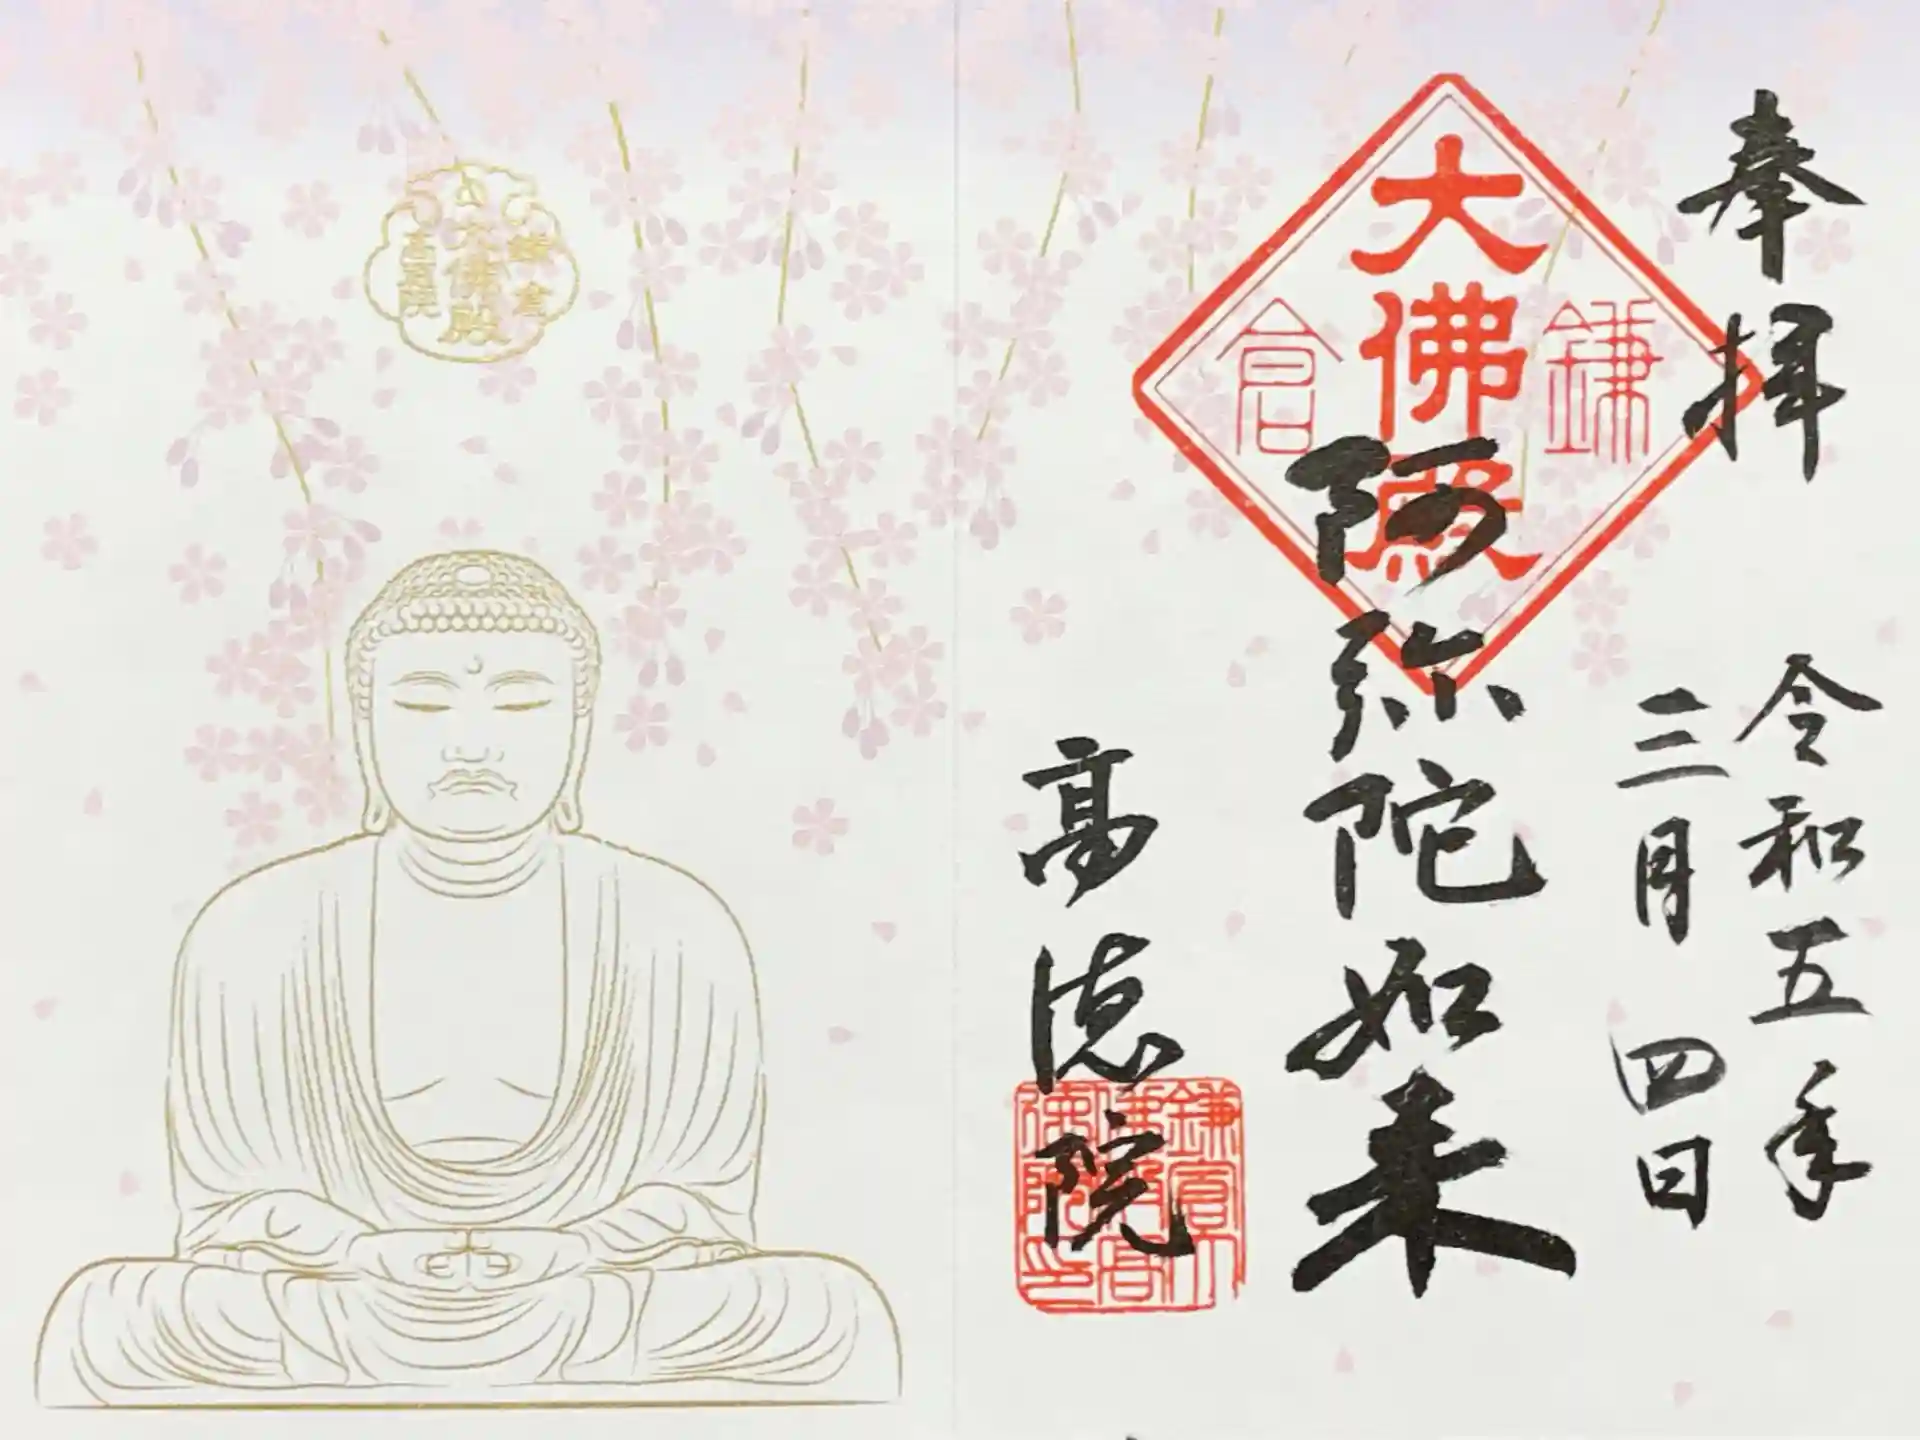 奉拝
令和五年
三月四日
鎌倉
大佛殿
阿弥陀如来
高徳院
鎌倉大
佛殿高
徳院印
鎌倉
大佛殿
高徳院